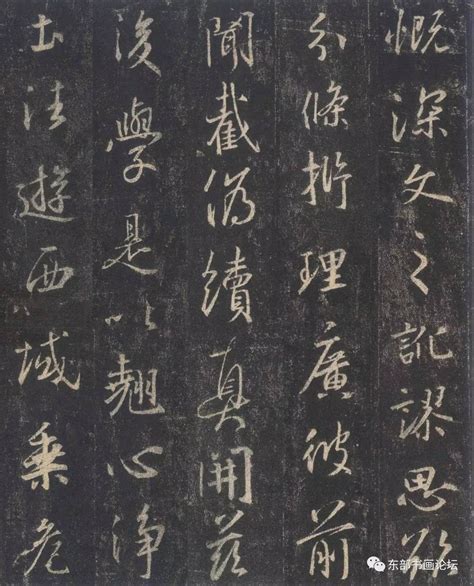 慨深文之訛謬思欲
分條析理廣彼前
聞截偽續真開茲
後學是以翹心淨
土法遊西域乘危
东部书画论坛